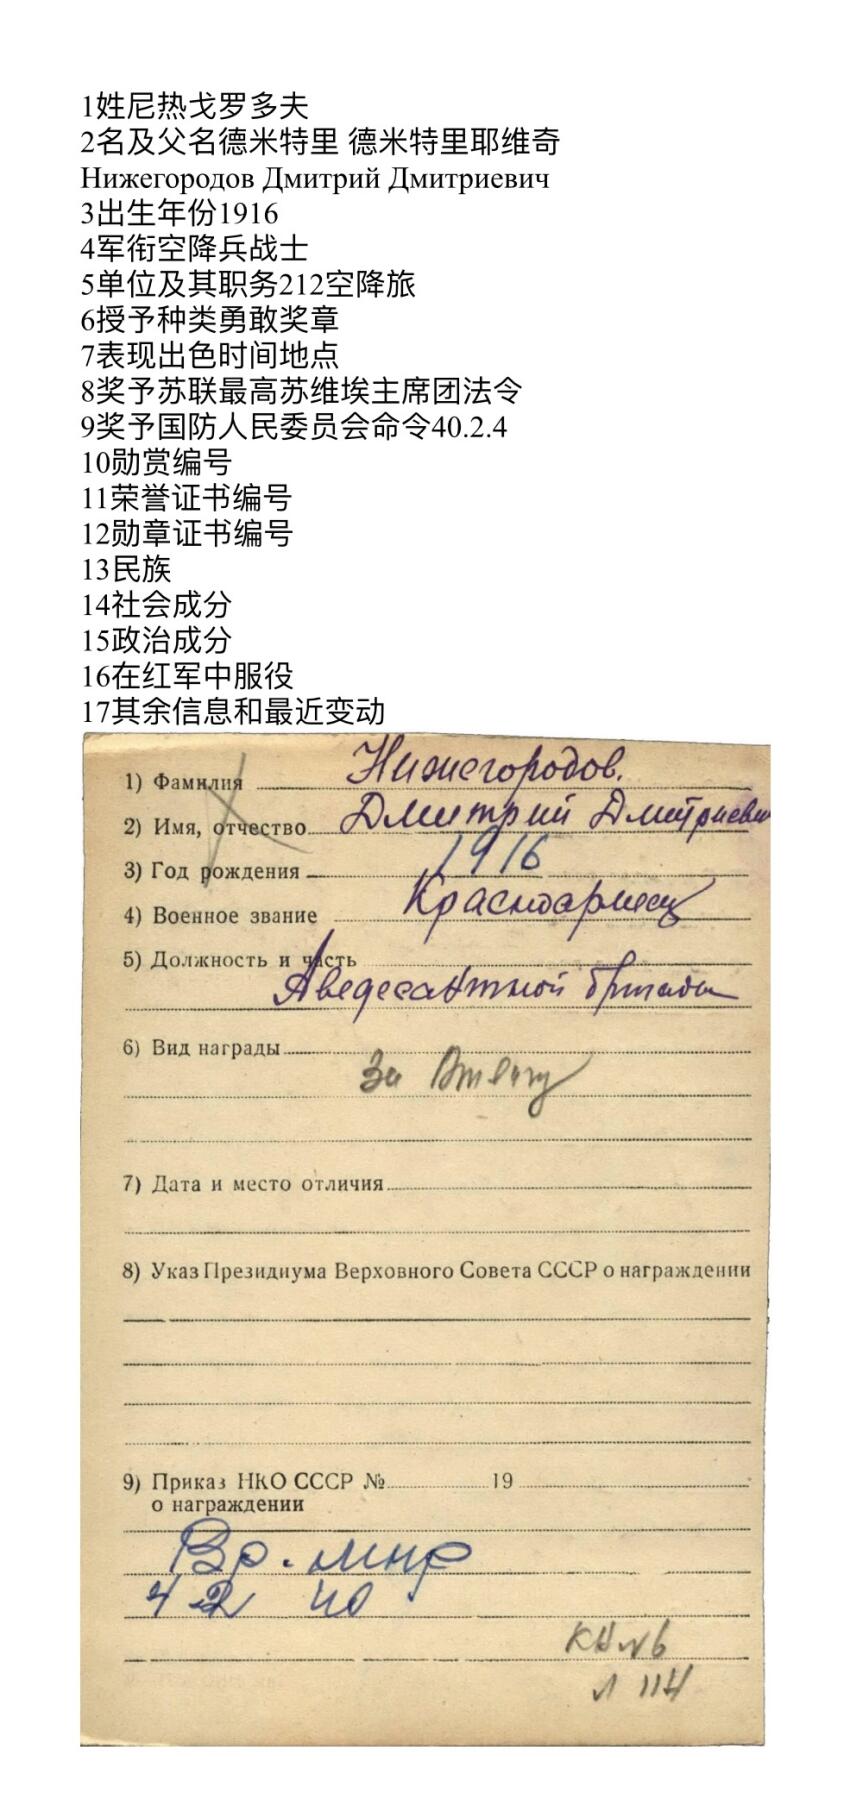 1姓尼热戈罗多夫
2名及父名德米特里 德米特里耶维奇
Нижегородов Дмитрий Дмитриевич
3出生年份1916
4军衔空降兵战士
5单位及其职务212空降旅
6授予种类勇敢奖章
7表现出色时间地点
8奖予苏联最高苏维埃主席团法令
9奖予国防人民委员会命令40.2.4
10勋赏编号
11荣誉证书编号
12勋章证书编号
13民族
14社会成分
15政治成分
16在红军中服役
17其余信息和最近变动
1) Фамилия Нижегородов.
2) Имя, отчество Дмитрий Дмитриевич
3) Год рождения 1916
4) Военное звание Красноармеец
5) Должность и часть
Аведесантной бригады
6) Вид награды
За Отвагу
7) Дата и место отличия
8) Указ Президиума Верховного Совета СССР о награждении
9) Приказ НКО СССР № 19
о награждении
Вр. МНР
4 2 40
КН №6
Л 114